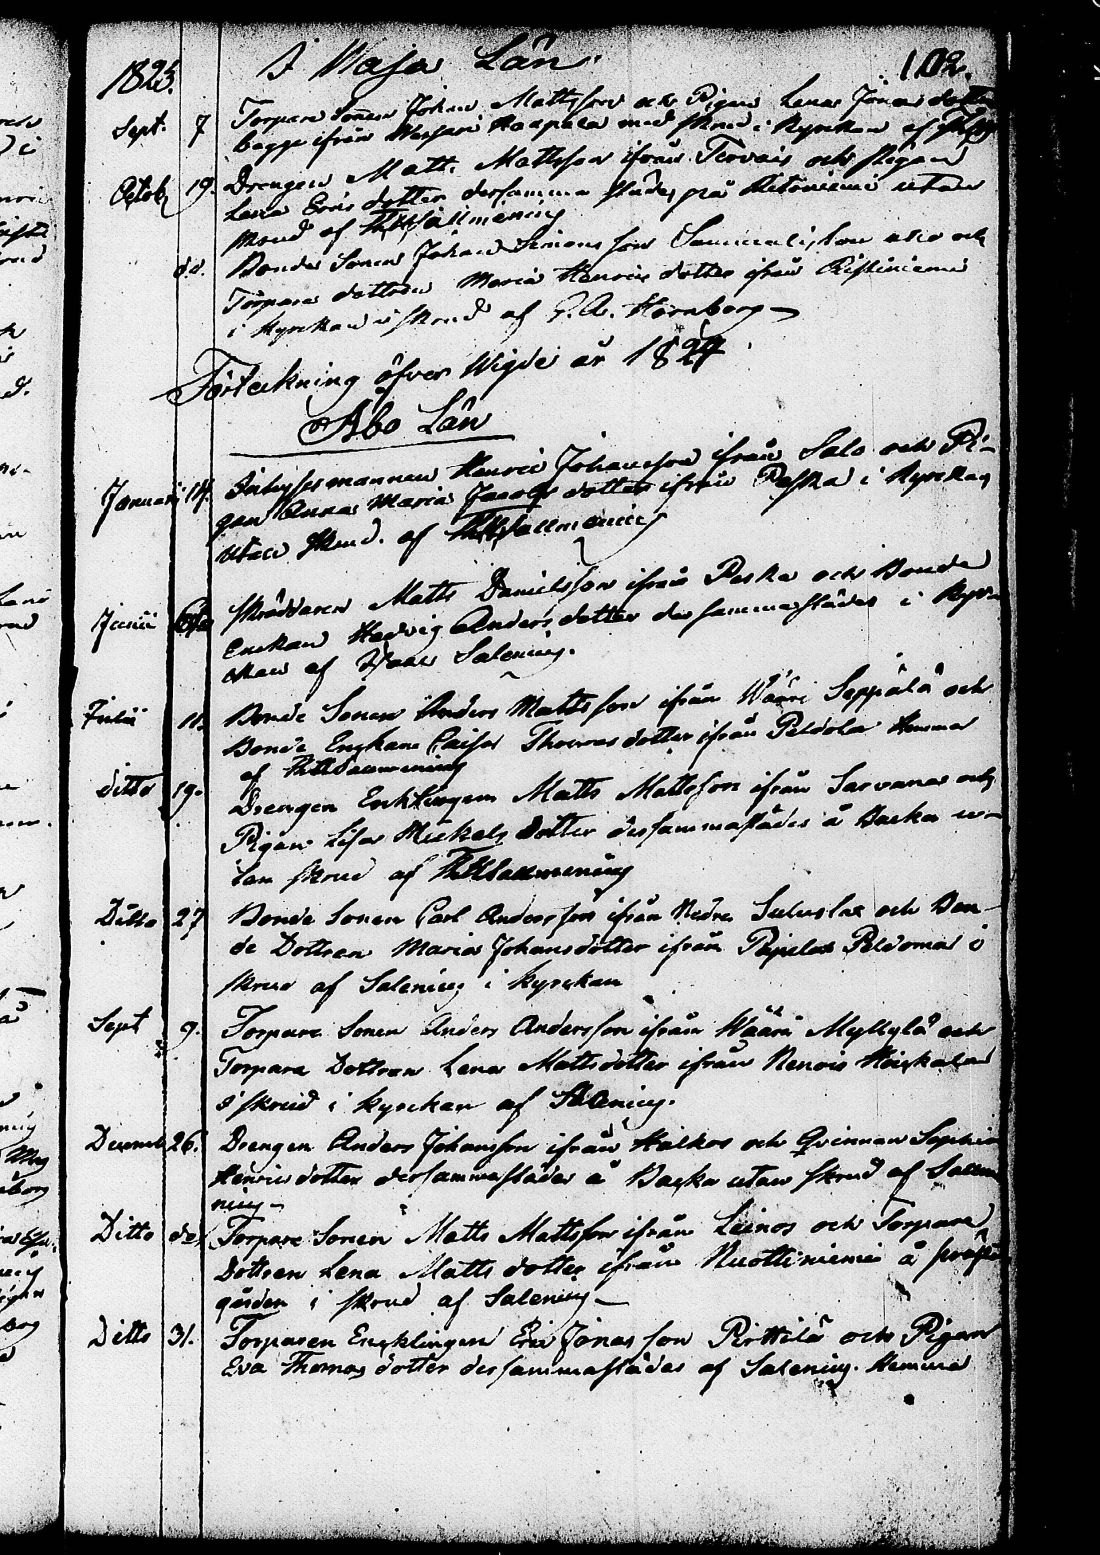 1823. I Wasa Län. 102.
Sept. 7 Torpare Sonen Johan Mattsson och Pigan Lena Jonae dotter
begge ifrån Haapala med skrud i Kyrckan af
Octob 19. Drengen Matt. Mattsson ifrån Tervais och Pigan
Lena Erics dotter dersamma städes på Ketoniemi utan
skrud af Salmening
do. Bonde Sonen Johan Simonsson och
Torpare dottren Maria Henrics dotter ifrån Ristiniemi
i Kyrckan i skrud af G. A. Hornborg
Förteckning öfver Wigde år 1824
Åbo Län
Januari 14. Inhysesmannen Henric Johansson ifrån Salo och Pi-
gan Anna Maria Jacobs dotter ifrån Paska i Kyrckan
utan skrud. af Salmening
Junii Skräddaren Matts Danielsson ifrån Paska och Bonde
Enckan Hedvig Anders dotter dersammastädes i Kyrc
kan af Salening.
Julii 11. Bonde Sonen Anders Mattsson ifrån Wääri Seppälä och
Bonde Enckan Caisa Thomas dotter ifrån Peldola Hemma
af Salmening
ditto 19. Drengen Encklingen Matts Mattsson ifrån Sarvana och
Pigan Lisa Mickels dotter dersammastädes å Backa u-
tan skrud af Salmening
Ditto 27 Bonde Sonen Carl Andersson ifrån Nedre och Bon
de Dottren Maria Johansdotter ifrån Peldoma i
skrud af Salening i Kyrckan
Sept 9. Torpare Sonen Anders Andersson ifrån Wääri Myllylä och
Torpare Dottren Lena Mattsdotter ifrån Heiskala
i skrud i Kyrckan af Salening.
Decemb 26. Drengen Anders Johansson ifrån Halkos och Qvinnan Sophia
Henrics dotter dersammastädes å Backa utan skrud af Salme
ning
Ditto do Torpare Sonen Matts Mattsson ifrån Leinos och Torpare
Dottren Lena Matts dotter ifrån Nuottiniemi å prest
gården i skrud af Salening
Ditto 31. Torparen Encklingen Eric Jonasson Pirttilä och Pigan
Eva Thomas dotter dersammastädes af Salening. Hemma